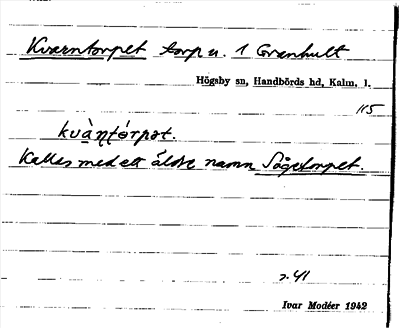 Kvarntorpet torp u. 1 Granhult
Högsby sn, Handbörds hd, Kalm. l.
115
kvà̱ɳʈórpət.
Kallas med ett äldre namn Sågetorpet
s. 41
Ivar Modéer 1942